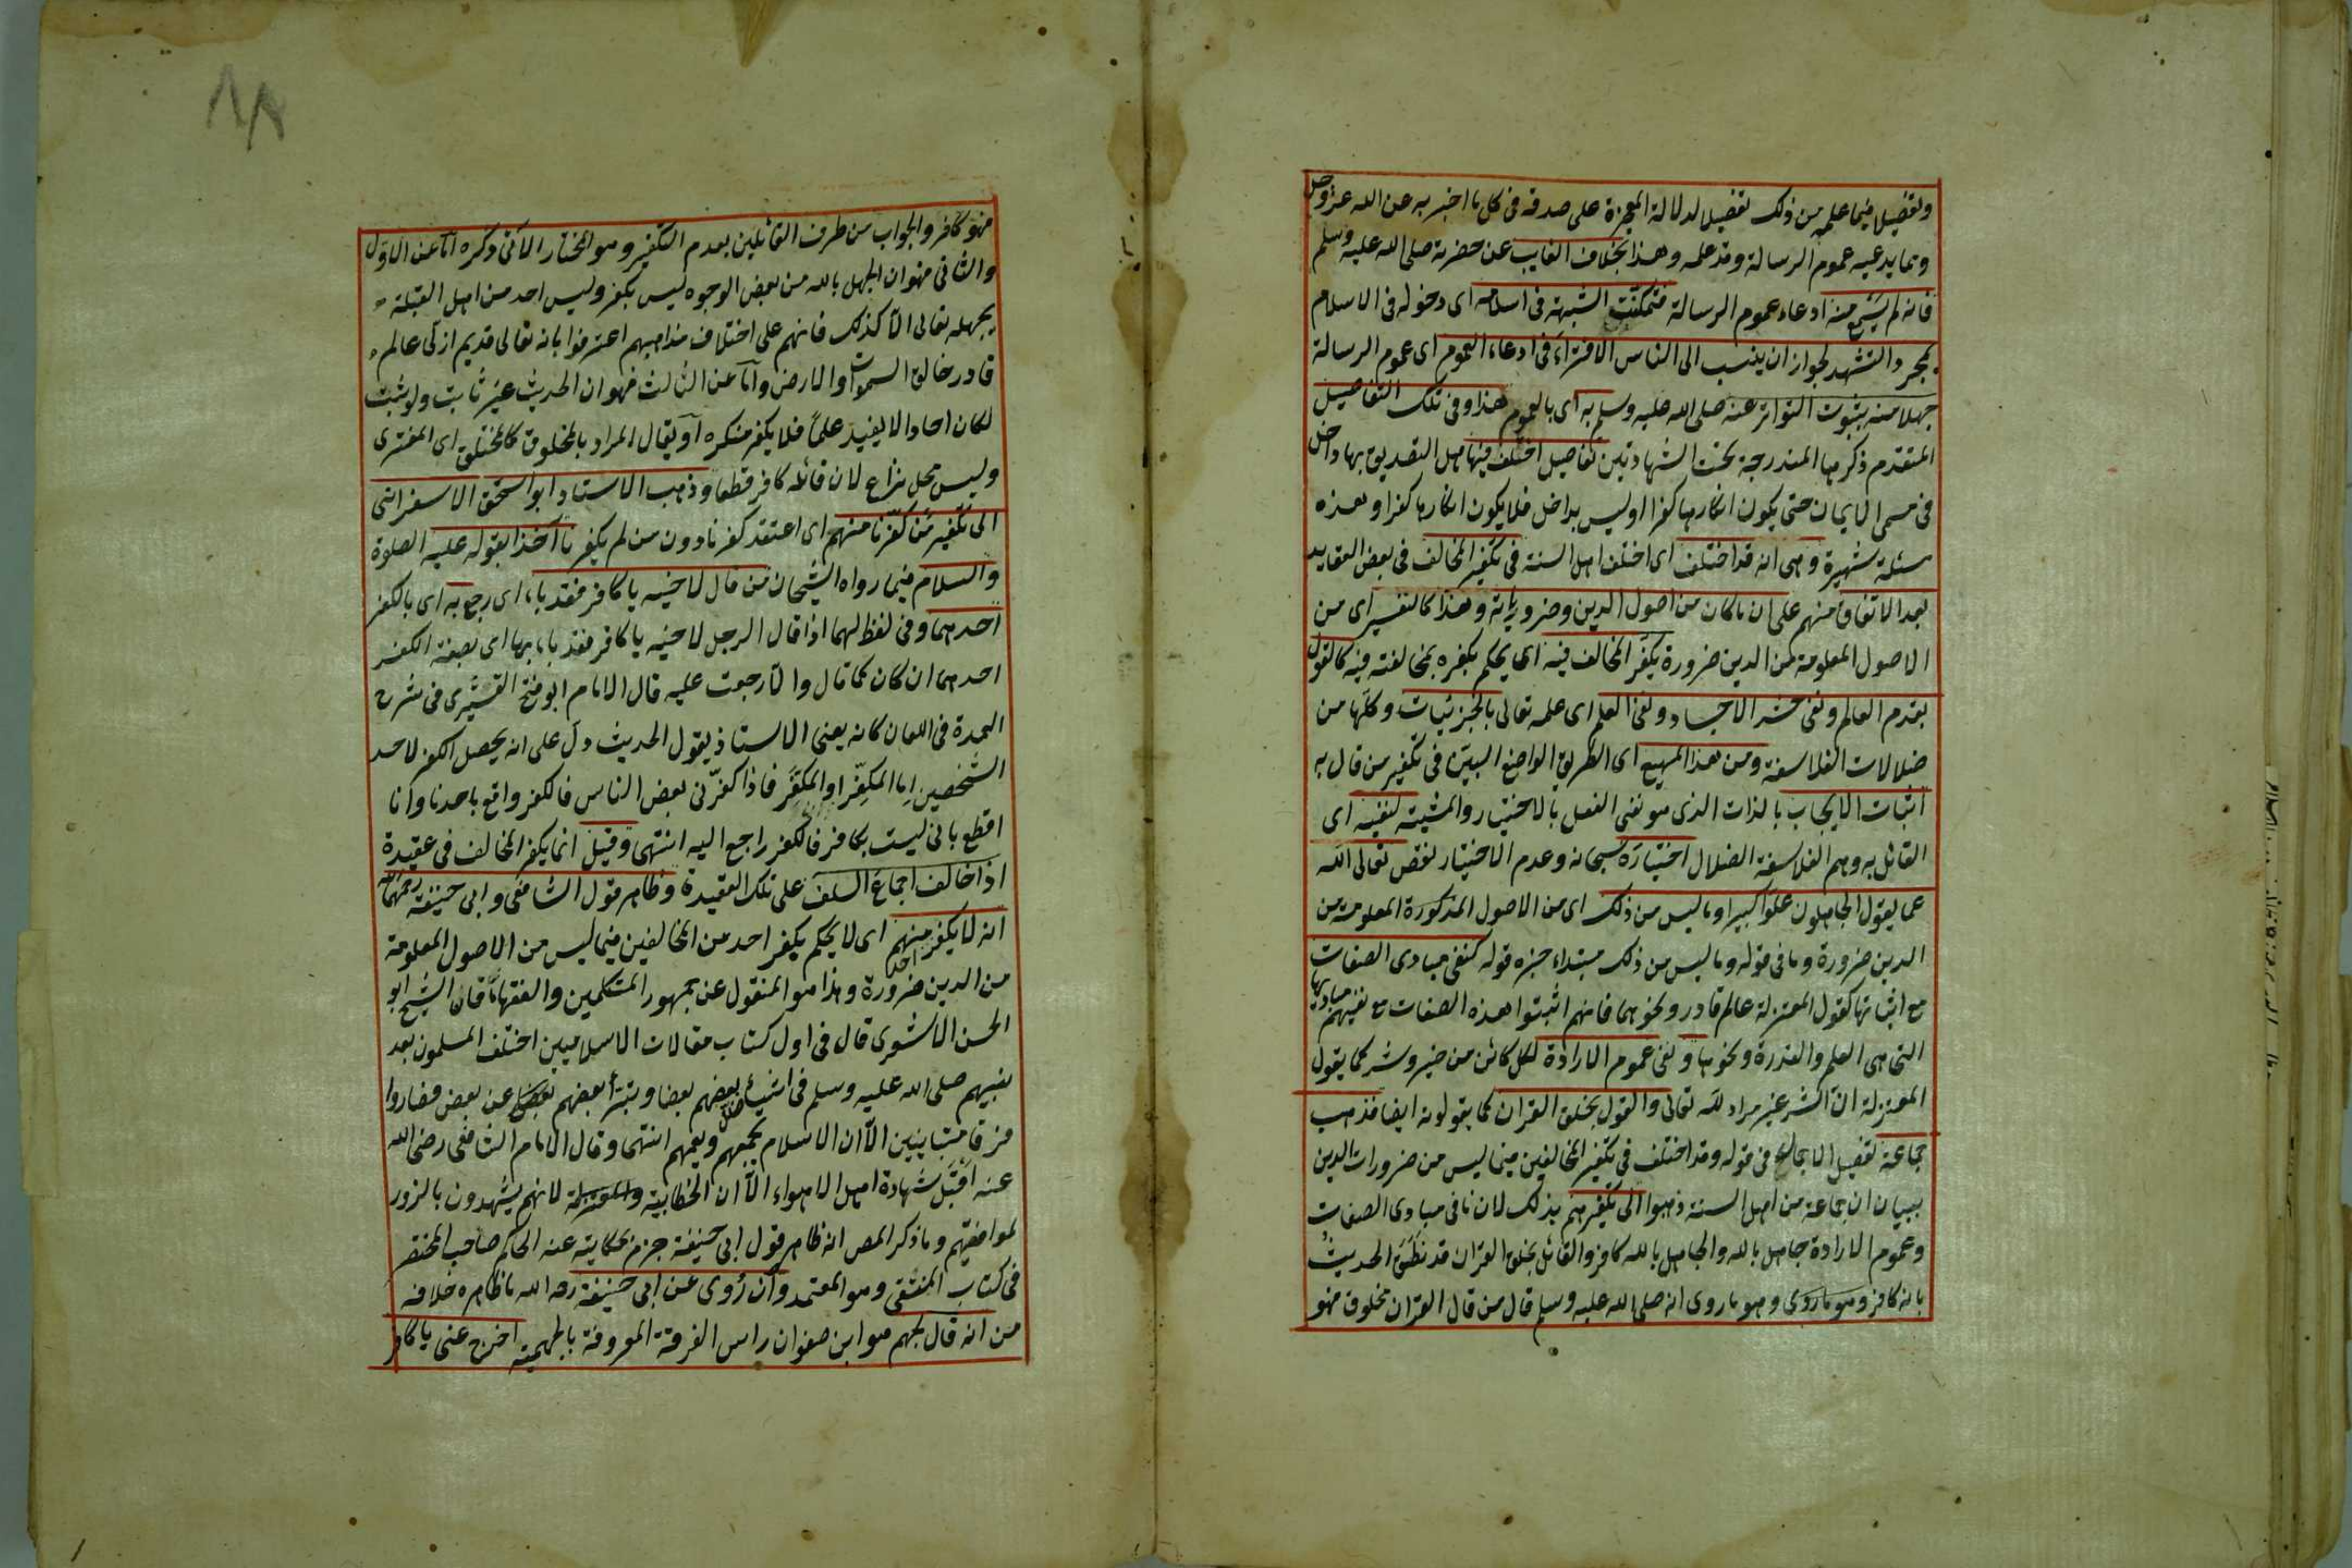 وتفصيلا فيما علم من ذلك تفصيلا لدلالة المعجزة على صدقه فى كل ما اخبر به عن الله عز وجل
ومما يدعيه عموم الرسالة وقد علمه وهذا بخلاف الغايب عن حضرته صلى الله عليه وسلم
فانه لم يسمع منه ادعاء عموم الرسالة فتمكنت الشبهة فى اسلامه اى دخوله فى الاسلام
بمجرد التشهد لجواز ان ينسب الى الناس الافتراء فى ادعاء العموم اى عموم الرسالة
جهلا منه بثبوت التواتر عنه صلى الله عليه وسلم به اى بالعموم هذا وفى تلك التفاصيل
المتقدم ذكرها المندرجة تحت الشهادتين تفاصيل اختلف فيها هل التصديق بها داخل
فى مسمى الايمان حتى يكون انكارها كفرا او ليس بداخل فلا يكون انكارها كفرا وهذه
مسئلة شهيرة وهى انه قد اختلف اى اختلف اهل السنة فى تكفير المخالف فى بعض العقايد
بعد الاتفاق منهم على ان ما كان من اصول الدين وضرورياته وهذا كالتفسير اى من
الاصول المعلومة من الدين ضرورة يكفر المخالف فيه اى يحكم بكفره بمخالفته فيه كالقول
بقدم العالم ونفى حشر الاجساد ونفى العلم اى علمه تعالى بالجزئيات وكلها من
ضلالات الفلاسفة ومن هذا المهيع اى الطريق الواضح البين فى تكفير من قال به
اثبات الايجاب بالذات الذى هو نفى الفعل بالاختيار والمشية لنفيه اى
القائل به وهم الفلاسفة الضلال اختياره سبحانه وعدم الاختيار نقص تعالى الله
عما يقول الجاهلون علوا كبيرا وما ليس من ذلك اى من الاصول المذكورة المعلومة من
الدين ضرورة وما فى قوله وما ليس من ذلك مبتداء خبره قوله كنفى مبادى الصفات
مع اثباتها كقول المعتزلة عالم قادر ونحوهما فانهم اثبتوا هذه الصفات مع نفيهم مباديها
التى هى العلم والقدرة ونحوها ونفى عموم الارادة لكل كائن من خير وشر كما يقول
المعتزلة ان الشر غير مراد لله تعالى والقول بخلق القران كما يقولونه ايضا فذهب
جماعة تفصيل الاجمال فى قوله وقد اختلف فى تكفير المخالفين فيما ليس من ضرورات الدين
ببيان ان جماعة من اهل السنة ذهبوا الى تكفيرهم بذلك لان نافى مبادى الصفات
وعموم الارادة جاهل بالله والجاهل بالله كافر والقائل بخلق القران قد نطق الحديث
بانه كافر وهو ما روى وهو ما روى انه صلى الله عليه وسلم قال من قال القران مخلوق فهو
فهو كافر والجواب من طرف القائلين بعدم التكفير وهو المختار الآتى ذكره اما عن الاول
والثانى فهو ان الجهل بالله من بعض الوجوه ليس بكفر وليس احد من اهل القبلة
يجهله تعالى الا كذلك فانهم على اختلاف مذاهبهم اعترفوا بانه تعالى قديم ازلى عالم
قادر خالق السموات والارض واما عن الثالث فهو ان الحديث غير ثابت ولو ثبت
لكان احادا لا يفيد علما فلا يكفر منكره او يقال المراد بالمخلوق كالمختلق اى المفترى
وليس محل نزاع لان قائله كافر قطعا وذهب الاستاد ابو اسحق الاسفراينى
الى تكفير من كفرنا منهم اى اعتقد كفرنا دون من لم يكفرنا اخذا بقوله عليه الصلوة
والسلام فيما رواه الشيخان من قال لاخيه يا كافر فقد باء اى رجع به اى بالكفر
احدهما وفى لفظ لهما اذا قال الرجل لاخيه يا كافر فقد باء بها اى بصفة الكفر
احدهما ان كان كما قال والا رجعت عليه قال الامام ابو فتح القشيرى فى شرح
العمدة فى اللعان كانه يعنى الاستاذ يقول الحديث دل على انه يحصل الكفر لاحد
الشخصين اما المكفر او المكفر فاذا كفرنى بعض الناس فالكفر واقع باحدنا وانا
اقطع بانى ليست بكافر فالكفر راجع اليه انتهى وقيل انما يكفر المخالف فى عقيدة
اذا خالف اجماع السلف على تلك العقيدة وظاهر قول الشافعى وابى حنيفة رحمهما الله
انه لا يكفر منهم احد اى لا يحكم بكفر احد من المخالفين فيما ليس من الاصول المعلومة
من الدين ضرورة وهذا هو المنقول عن جمهور المتكلمين والفقهاء فان الشيخ ابو
الحسن الاشعرى قال فى اول كتاب مقالات الاسلاميين اختلف المسلمون بعد
نبيهم صلى الله عليه وسلم فى اشياء ضلل بعضهم بعضا وتبرأ بعضهم عن بعض فصاروا
فرقا متباينين الا ان الاسلام يجمعهم ويعمهم انتهى وقال الامام الشافعى رضى الله
عنه اقبل شهادة اهل الاهواء الا ان الخطابية والمعتزلة لانهم يشهدون بالزور
لموافقيهم وما ذكر المص انه ظاهر قول ابى حنيفة جزم بحكايته عنه الحاكم صاحب المختصر
فى كتاب المنتقى وهو المعتمد وان روى عن ابى حنيفة رحمه الله ما ظاهره خلافه
من انه قال لجهم هو ابن صفوان راس الفرقة المعروفة بالجهمية اخرج عنى يا كافر